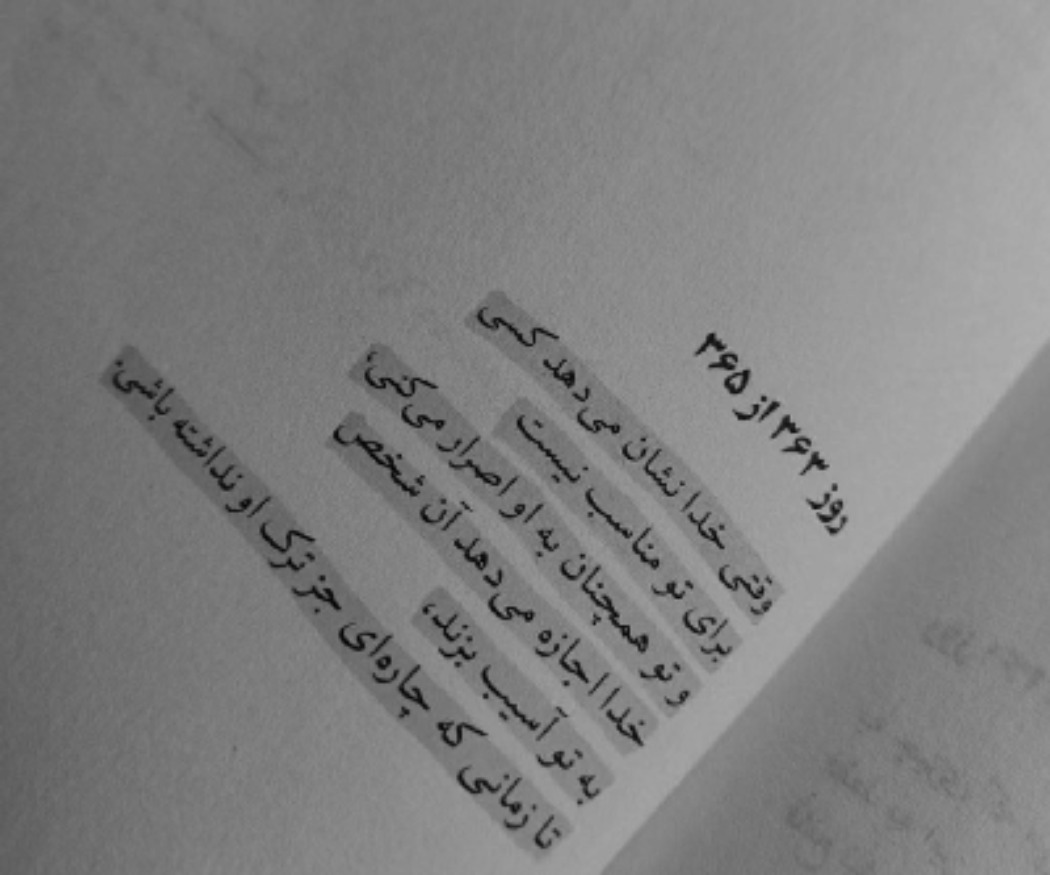 روز ۳۶۳ از ۳۶۵
وقتی خدا نشان می‌دهد کسی
برای تو مناسب نیست
و تو همچنان به او اصرار می‌کنی،
خدا اجازه می‌دهد آن شخص
به تو آسیب بزند،
تا زمانی که چاره‌ای جز ترک او نداشته باشی.